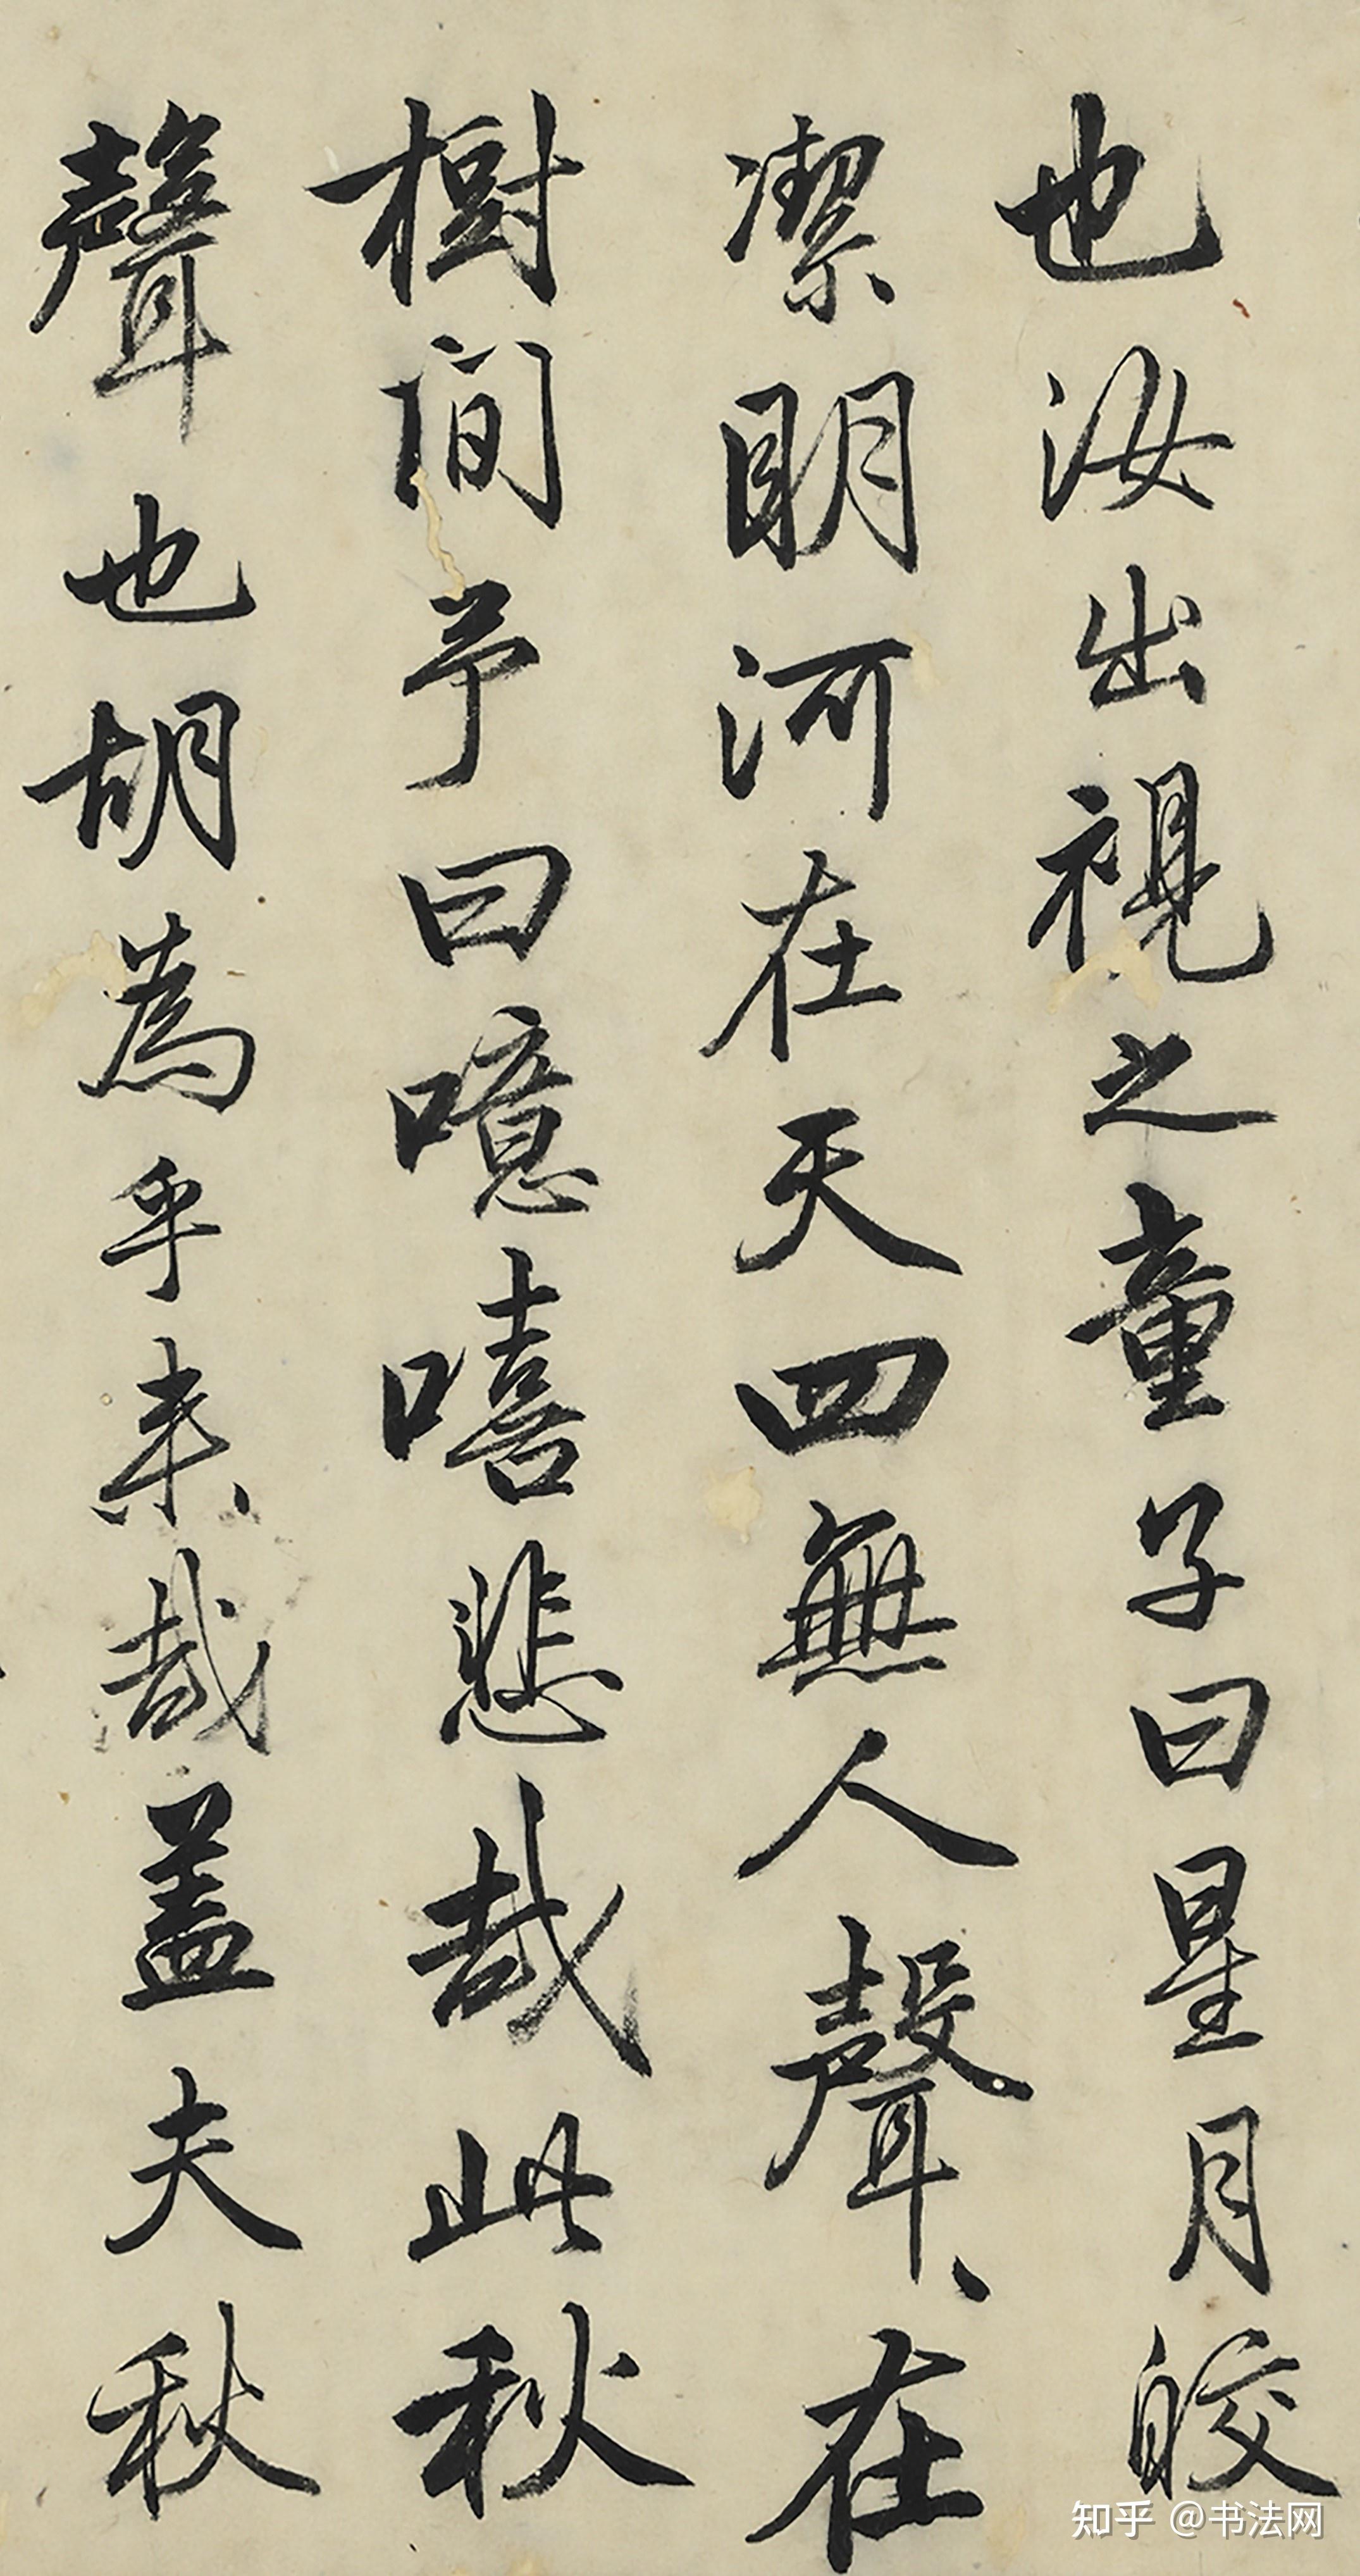 也汝出視之童子曰星月皎
潔明河在天四無人聲、在
樹間予曰噫嘻悲哉此秋
聲也胡為乎来哉蓋夫秋
知乎 @书法网